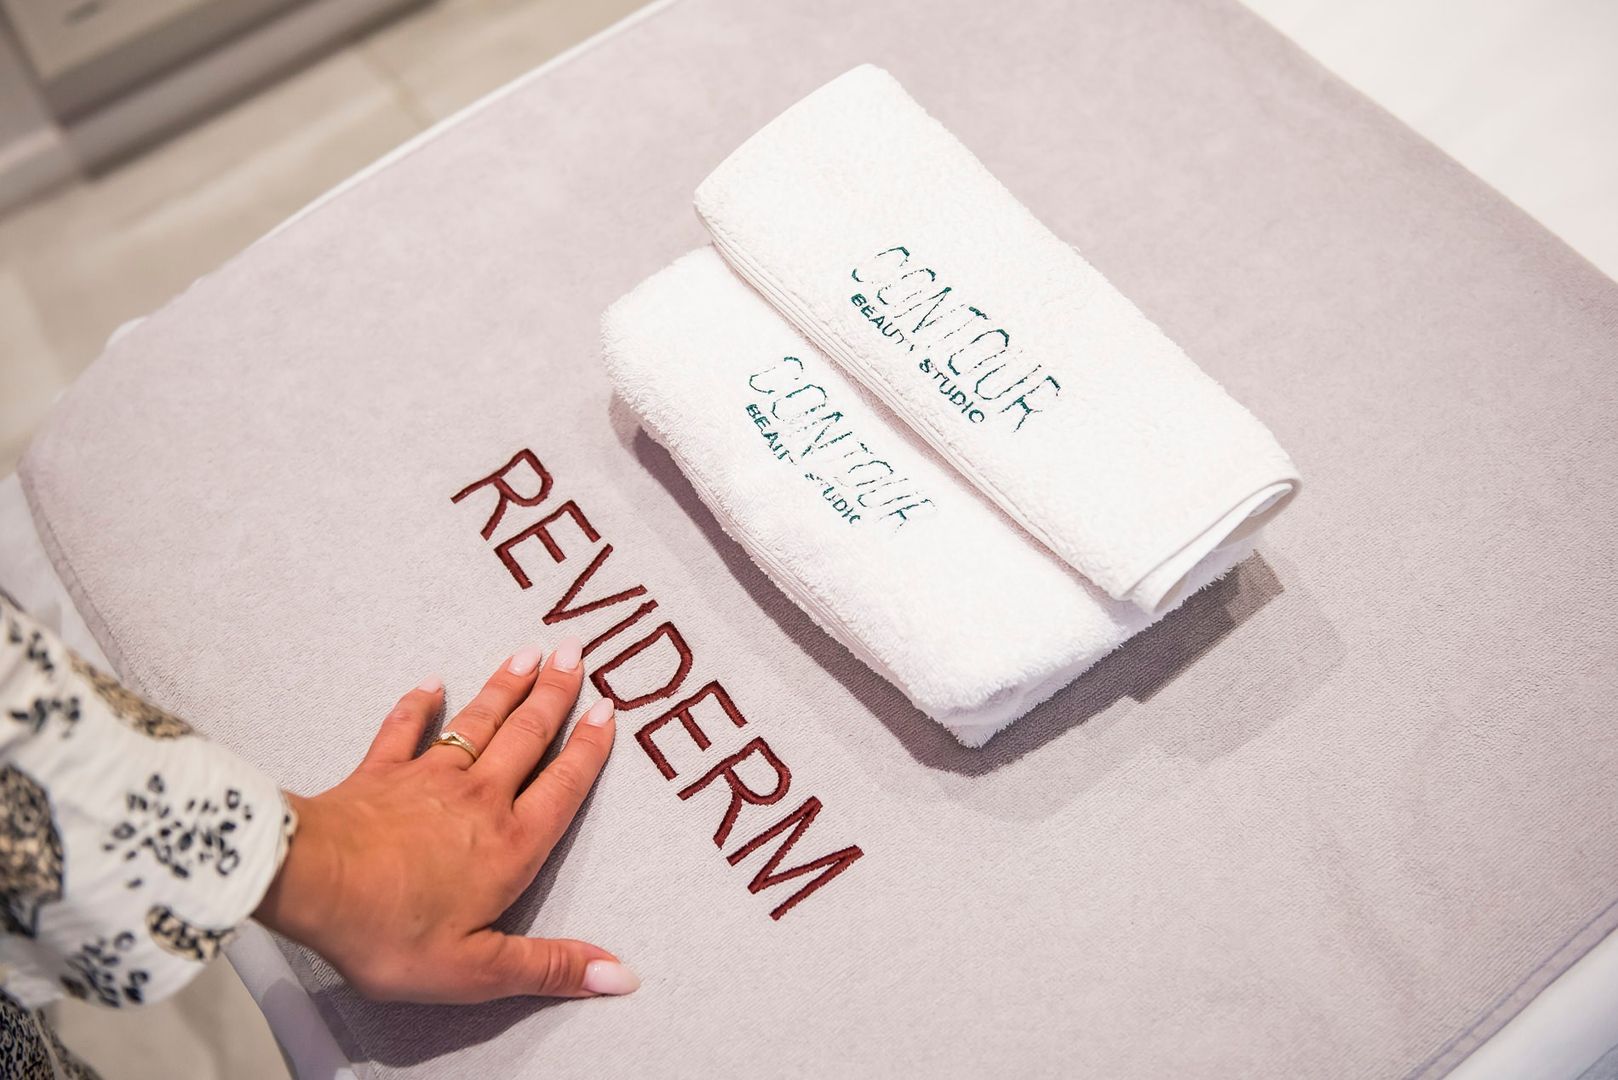 CONTOUR
BEAUTY STUDIO
CONTOUR
BEAUTY STUDIO
REVIDERM